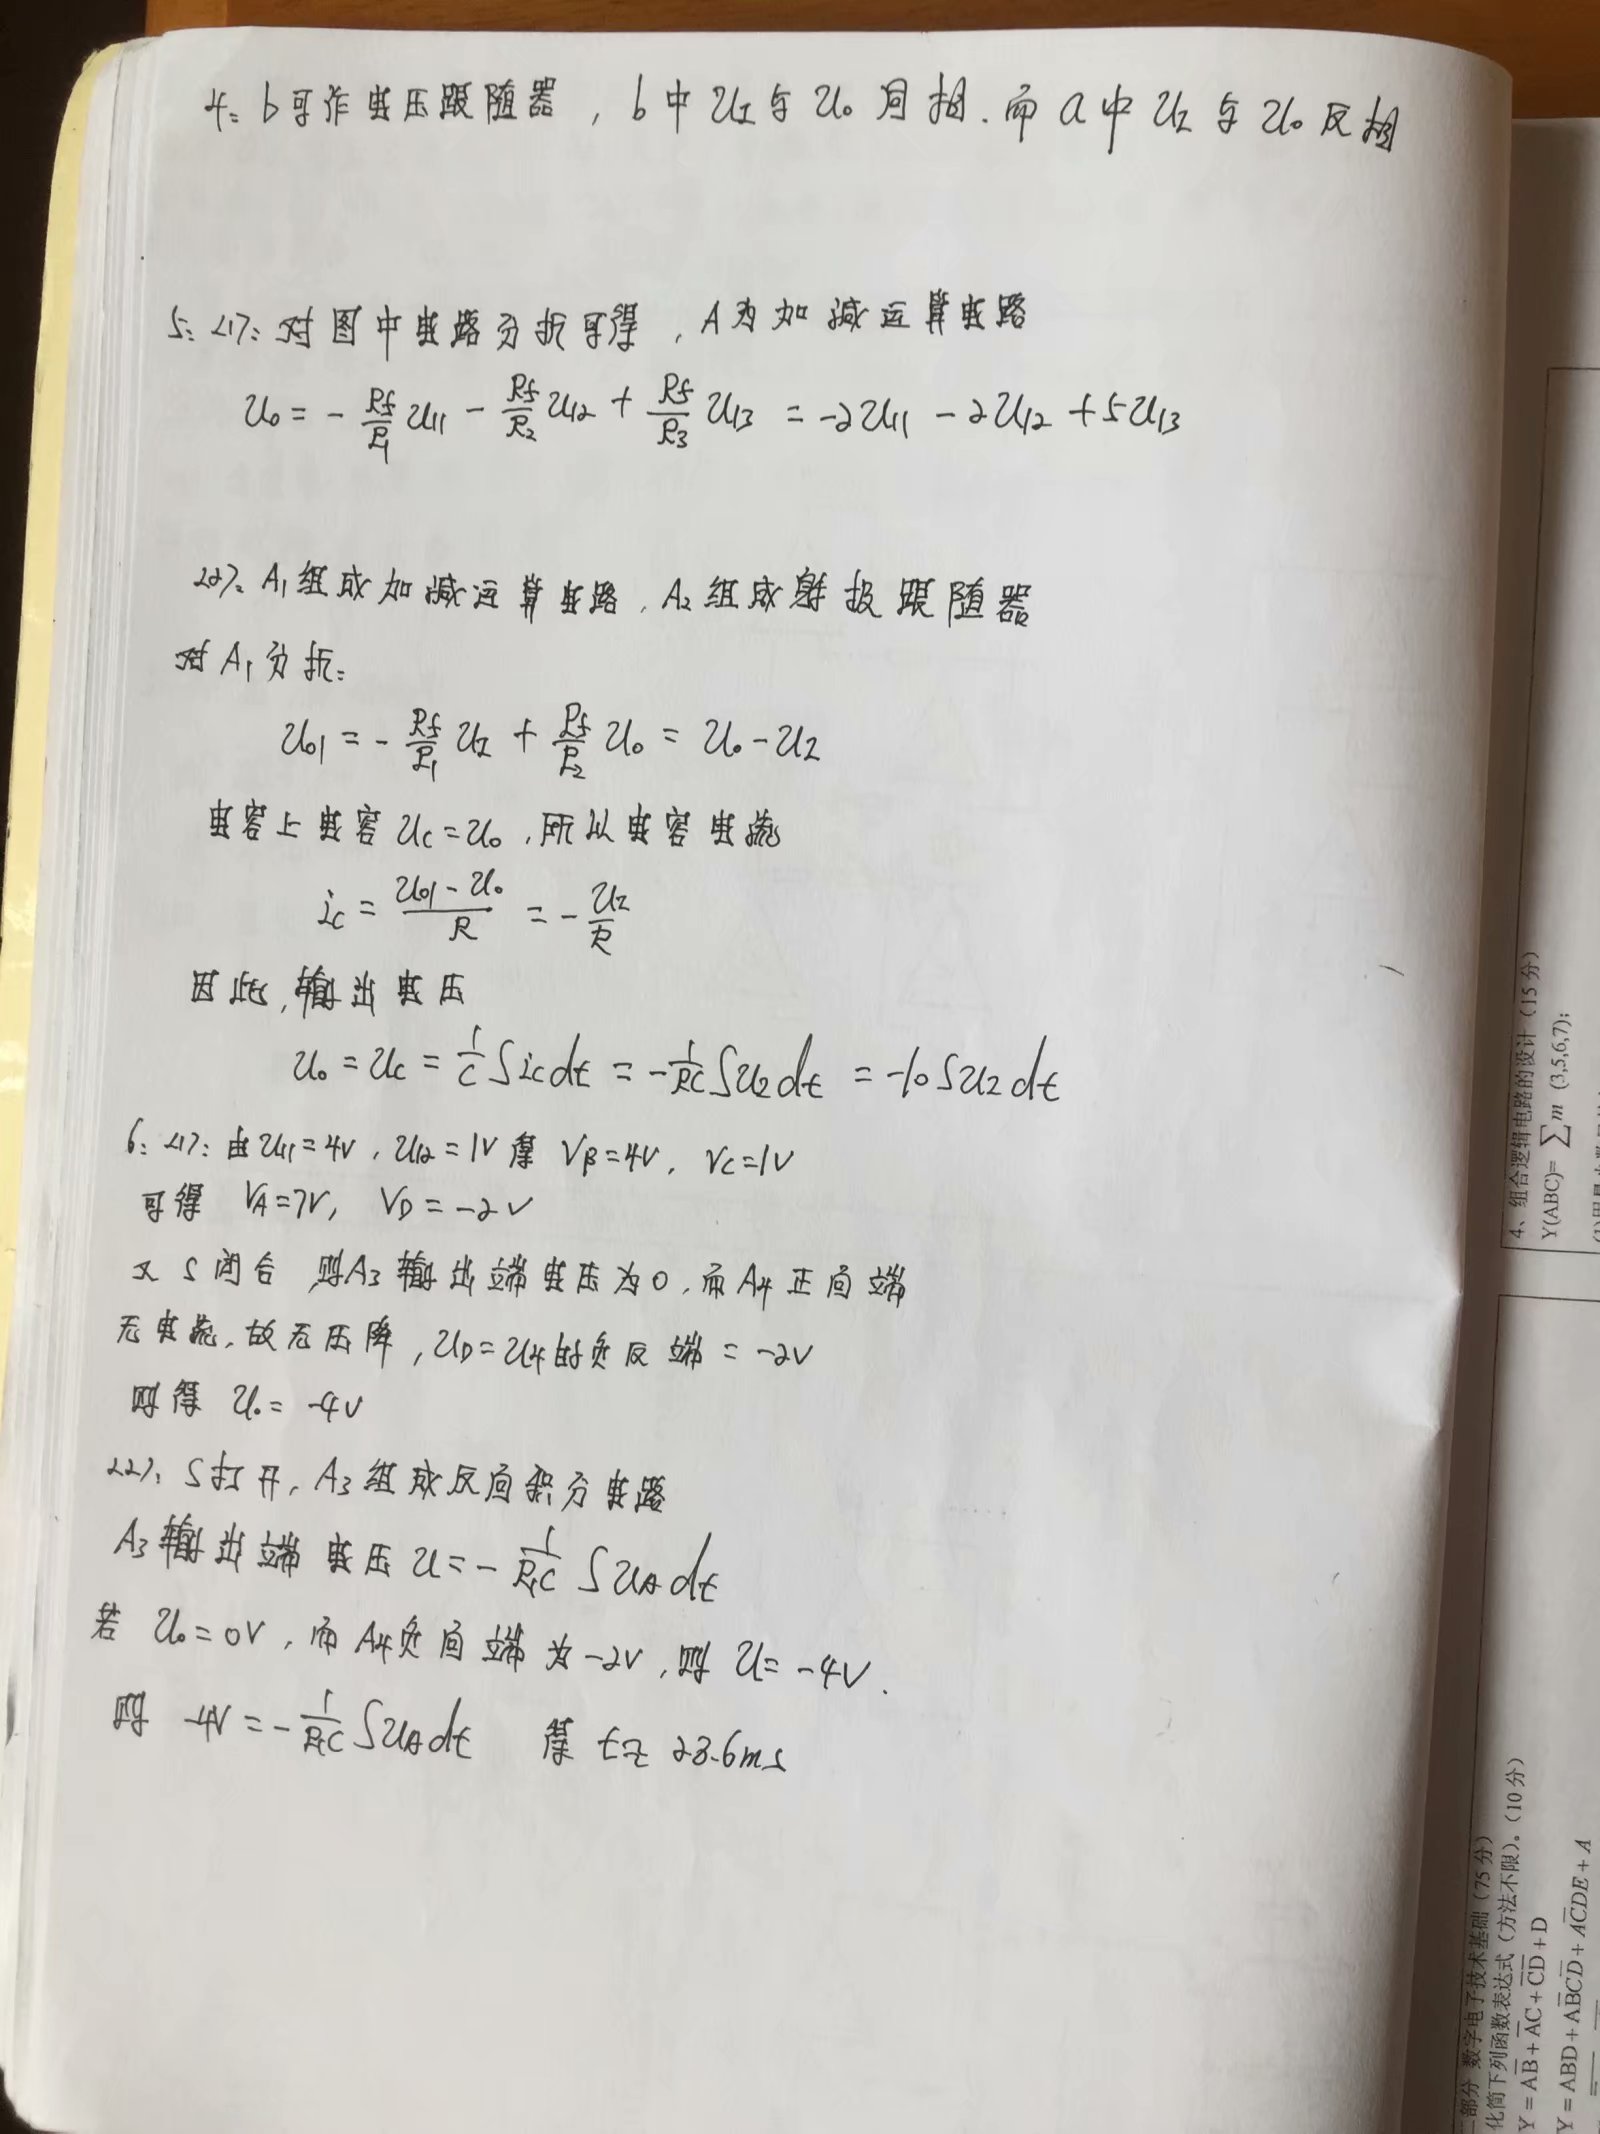 4: b可作电压跟随器，b中uI与uo同相.而a中uI与uo反相
5: <1>: 对图中电路分析可得，A为加减运算电路
uo = - Rf/R1 uI1 - Rf/R2 uI2 + Rf/R3 uI3 = -2uI1 - 2uI2 + 5uI3
<2>: A1组成加减运算电路，A2组成射极跟随器
对A1分析:
uo1 = - Rf/R1 uI + Rf/R2 uo = uo - uI
电容上电容 uc = uo，所以电容电流
ic = (uo1 - uo)/R = - uI/R
因此，输出电压
uo = uc = 1/C ∫ic dt = - 1/RC ∫uI dt = -10∫uI dt
6: <1>: 由uI1=4V，uI2=1V 得 VB=4V，VC=1V
可得 VA=7V，VD=-2V
又 S闭合 则A3输出端电压为0，而A4正向端
无电流，故无压降，uD=u4的负反端=-2V
则得 uo = -4V
<2>: S打开，A3组成反向积分电路
A3输出端电压 u = - 1/R1C ∫uA dt
若 uo=0V，而A4负向端为-2V，则 u=-4V.
则 -4V = - 1/R1C ∫uA dt 得 t≈ 28.6ms
4、组合逻辑电路的设计（15分）
Y(ABC)= ∑m (3,5,6,7);
二部分 数字电子技术基础（75分）
化简下列函数表达式（方法不限）。（10分）